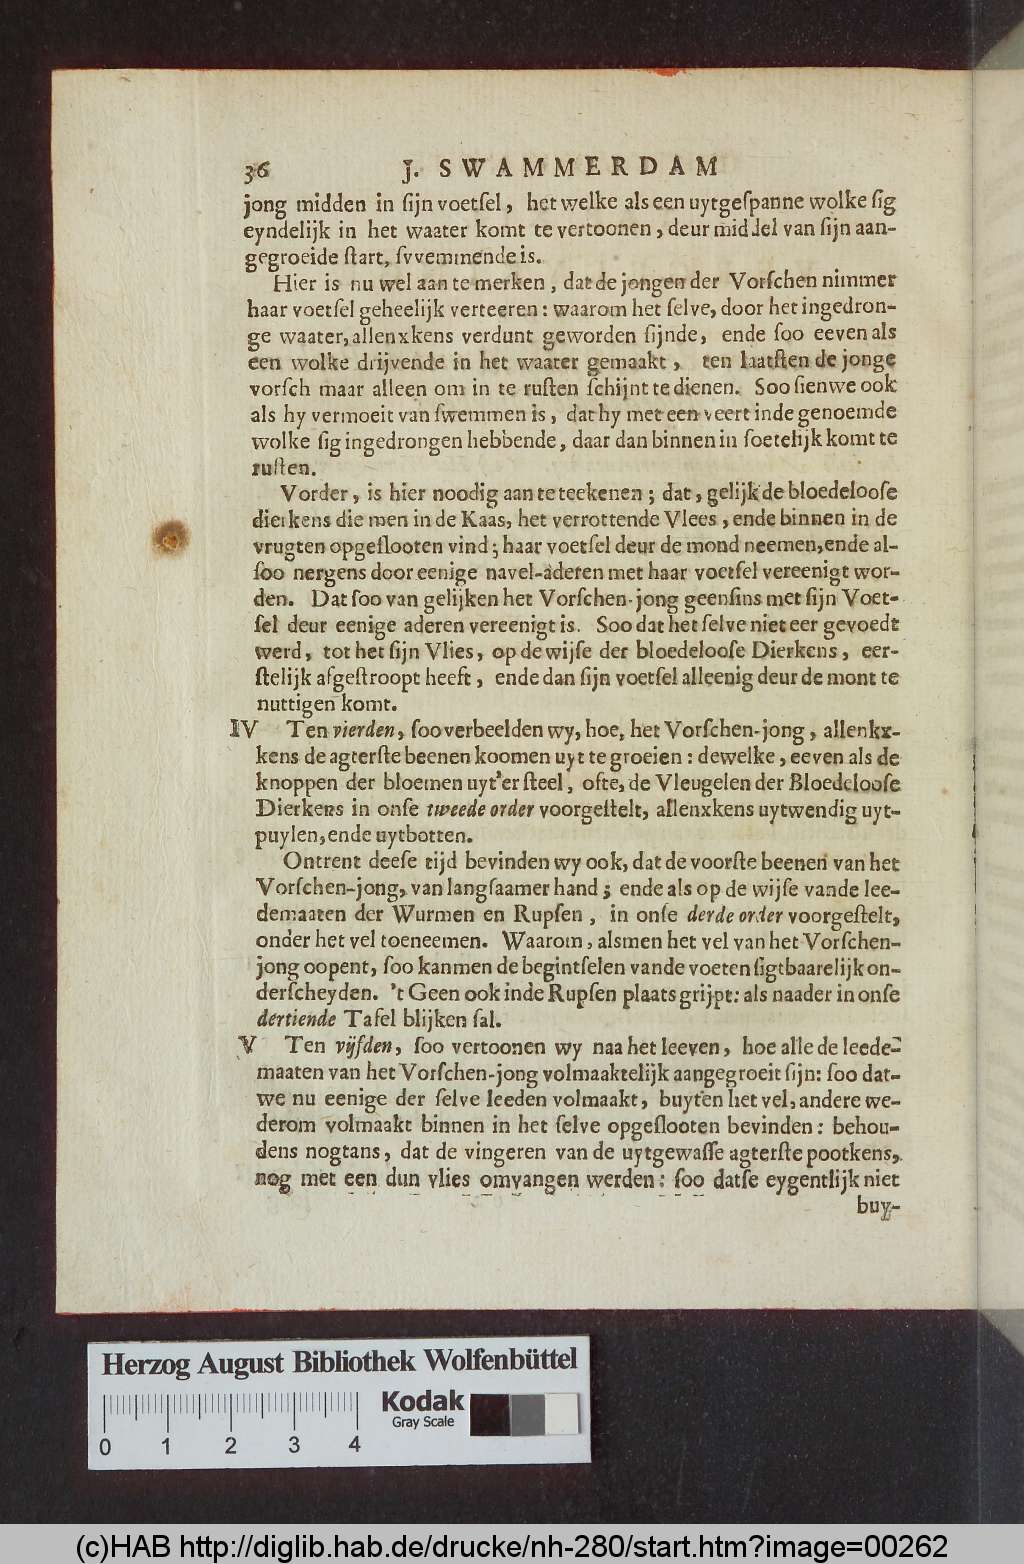 36 J. SWAMMERDAM
jong midden in ſijn voetſel, het welke als een uytgeſpanne wolke ſig
eyndelijk in het waater komt te vertoonen, deur middel van ſijn aan-
gegroeide ſtart, ſvvemmende is.
Hier is nu wel aan te merken, dat de jongen der Vorſchen nimmer
haar voetſel geheelijk verteeren: waarom het ſelve, door het ingedron-
ge waater, allenxkens verdunt geworden ſijnde, ende ſoo eeven als
een wolke drijvende in het waater gemaakt, ten laatſten de jonge
vorſch maar alleen om in te ruſten ſchijnt te dienen. Soo ſien we ook
als hy vermoeit van ſwemmen is, dat hy met een veert in de genoemde
wolke ſig ingedrongen hebbende, daar dan binnen in ſoetelijk komt te
ruſten.
Vorder, is hier noodig aan te teekenen; dat, gelijk de bloedelooſe
dierkens die men in de Kaas, het verrottende Vlees, ende binnen in de
vrugten opgeſlooten vind; haar voetſel deur de mond neemen, ende al-
ſoo nergens door eenige navel-aderen met haar voetſel vereenigt wor-
den. Dat ſoo van gelijken het Vorſchen-jong geenſins met ſijn Voet-
ſel deur eenige aderen vereenigt is. Soo dat het ſelve niet eer gevoedt
werd, tot het ſijn Vlies, op de wijſe der bloedelooſe Dierkens, eer-
ſtelijk afgeſtroopt heeft, ende dan ſijn voetſel alleenig deur de mont te
nuttigen komt.
IV Ten vierden, ſoo verbeelden wy, hoe, het Vorſchen-jong, allenkx-
kens de agterſte beenen koomen uyt te groeien: dewelke, eeven als de
knoppen der bloemen uyt'er ſteel, ofte, de Vleugelen der Bloedelooſe
Dierkens in onſe tweede order voorgeſtelt, allenxkens uytwendig uyt-
puylen, ende uytbotten.
Ontrent deeſe tijd bevinden wy ook, dat de voorſte beenen van het
Vorſchen-jong, van langſaamer hand; ende als op de wijſe vande lee-
demaaten der Wurmen en Rupſen, in onſe derde order voorgeſtelt,
onder het vel toeneemen. Waarom, alsmen het vel van het Vorſchen-
jong oopent, ſoo kanmen de begintſelen vande voeten ſigtbaarelijk on-
derſcheyden. 't Geen ook inde Rupſen plaats grijpt: als naader in onſe
dertiende Tafel blijken ſal.
V Ten vijfden, ſoo vertoonen wy naa het leeven, hoe alle de leede-
maaten van het Vorſchen-jong volmaaktelijk aangegroeit ſijn: ſoo dat-
we nu eenige der ſelve leeden volmaakt, buyten het vel, andere we-
derom volmaakt binnen in het ſelve opgeſlooten bevinden: behou-
dens nogtans, dat de vingeren van de uytgewaſſe agterſte pootkens,
nog met een dun vlies omvangen werden: ſoo datſe eygentlijk niet
buy-
Herzog August Bibliothek Wolfenbüttel
Kodak
Gray Scale
0 1 2 3 4
(c)HAB http://diglib.hab.de/drucke/nh-280/start.htm?image=00262